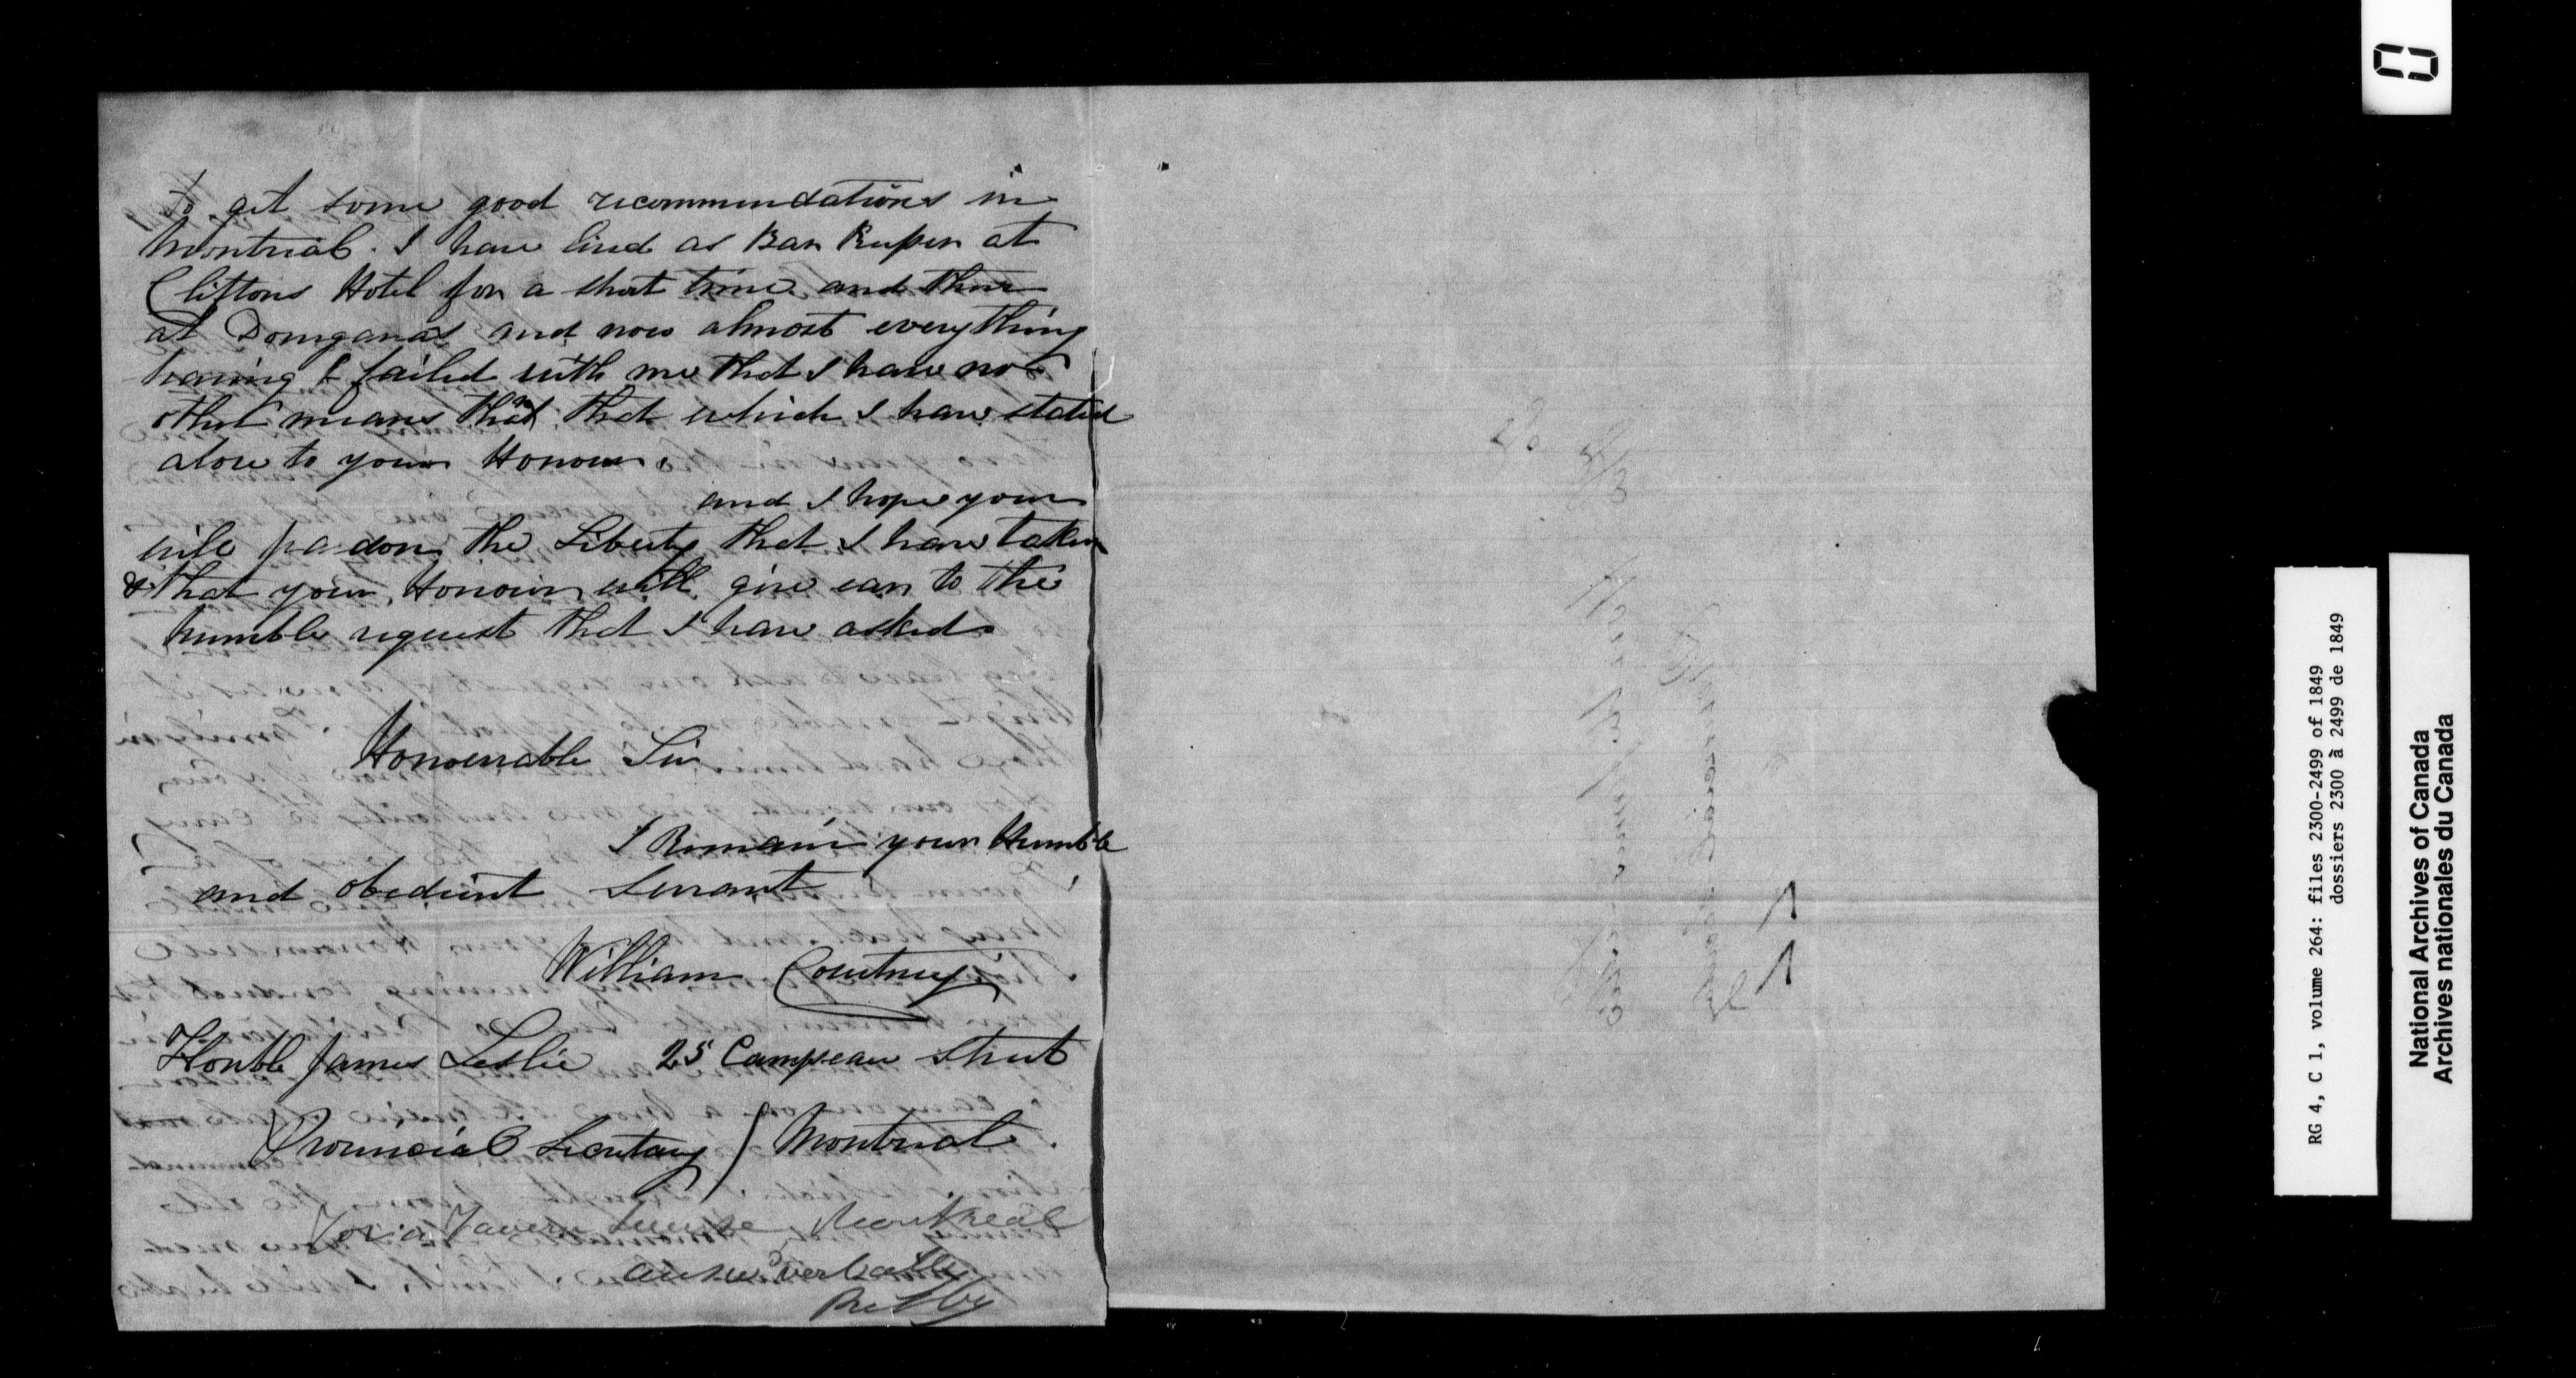 to get some good recommendations in
Montreal. I have lived as Bar Keeper at
Cliftons Hotel for a short time and then
at Donegana's and now almost everything
having failed with me that I have no
other means than that which I have stated
above to your Honour.
and I hope your
will pardon the Liberty that I have taken
& that your Honour will give ear to the
humble request that I have asked.
Honourable Sir
I Remain your Humble
and obedient Servant
William Courtney
Honble James Leslie 25 Campeau Street
Provincial Secretary / Montreal.
For a Tavern License Montreal
ansd verbally
RG 4, C 1, volume 264: files 2300-2499 of 1849
dossiers 2300 à 2499 de 1849
National Archives of Canada
Archives nationales du Canada